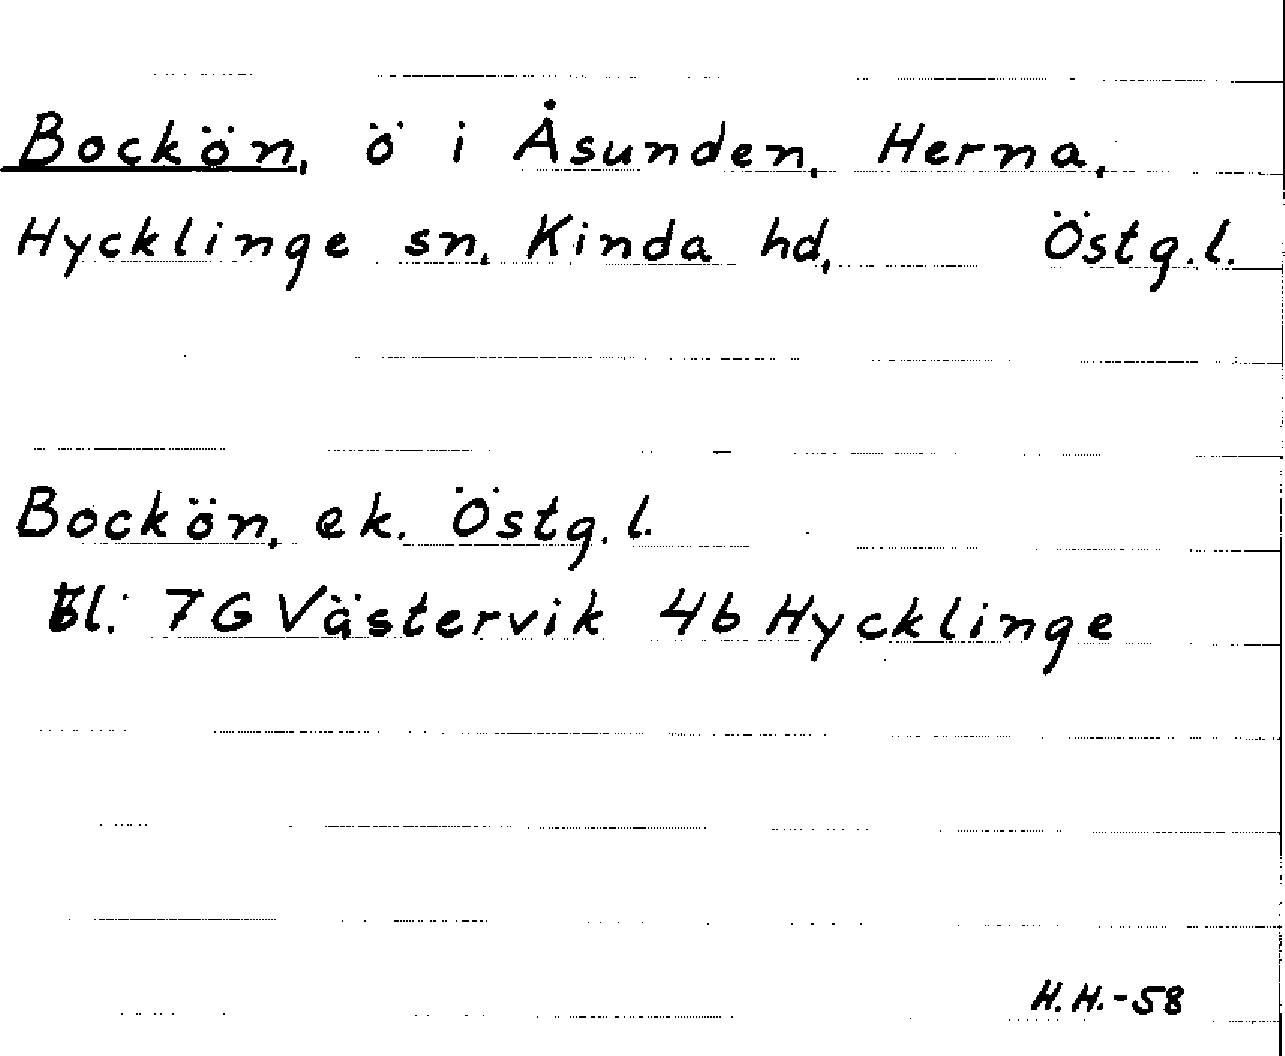 Bockön, ö i Åsunden, Herna,
Hycklinge sn, Kinda hd, Östg.l.
Bockön, ek. Östg.l.
bl: 7G Västervik 4b Hycklinge
H.H.-58